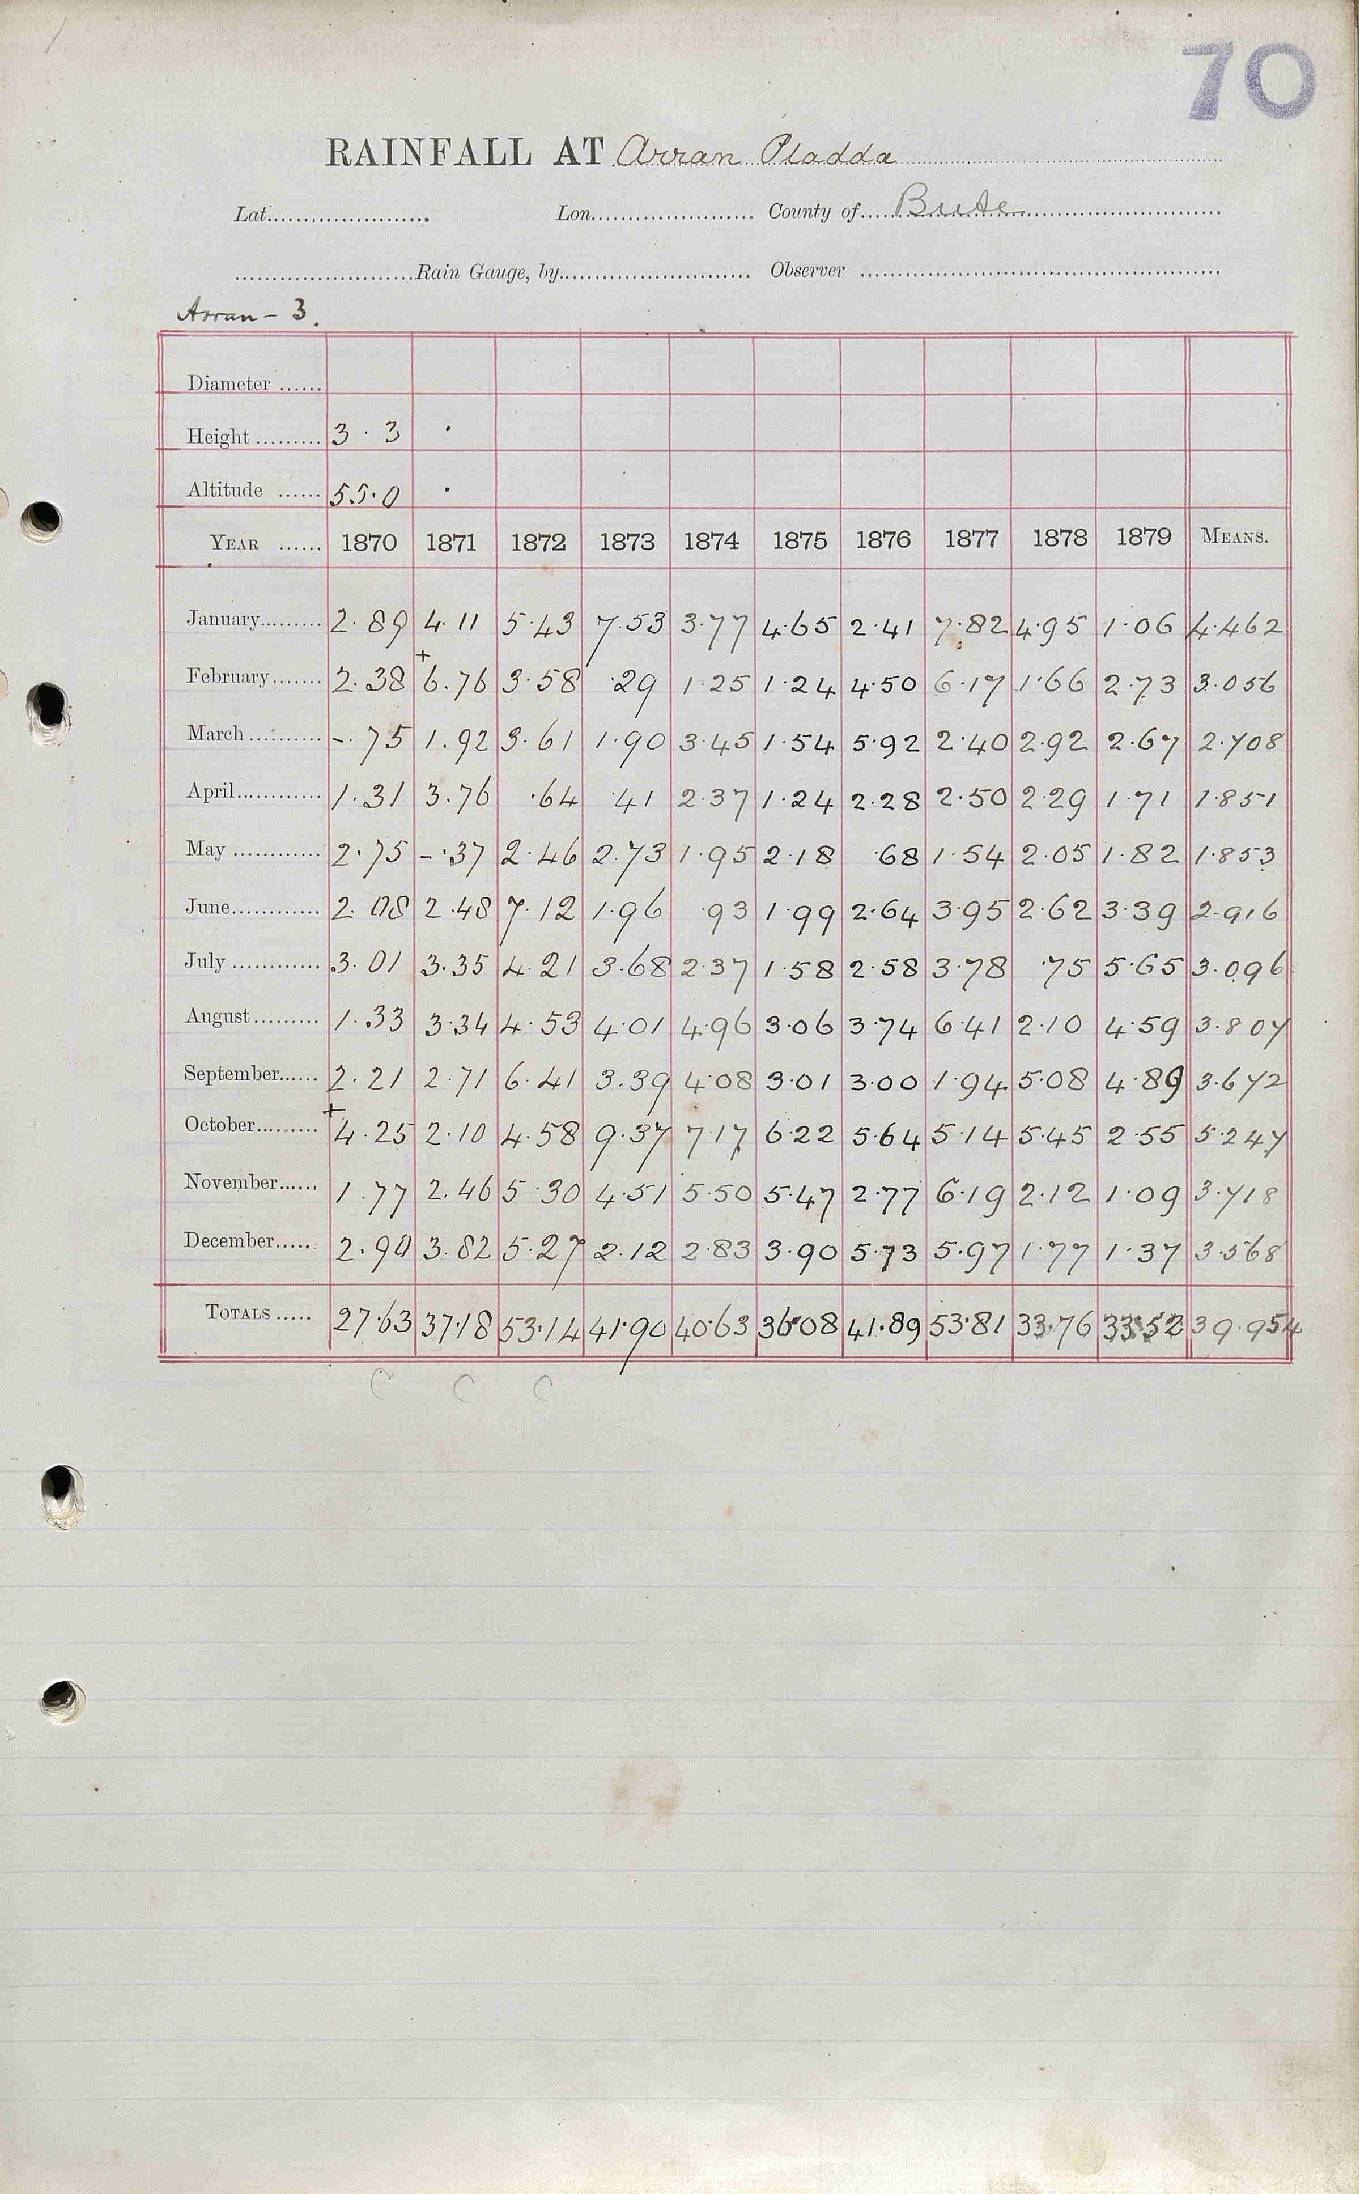 70
RAINFALL AT Arran Pladda
Lat. Lon. County of Bute
Rain Gauge, by Observer
Arran - 3.
Diameter
Height 3 · 3 ·
Altitude 55·0 ·
YEAR 1870 1871 1872 1873 1874 1875 1876 1877 1878 1879 MEANS.
January 2·89 4·11 5·43 7·53 3·77 4·65 2·41 7·82 4·95 1·06 4·462
February 2·38 +6·76 3·58 ·29 1·25 1·24 4·50 6·17 1·66 2·73 3·056
March -·75 1·92 3·61 1·90 3·45 1·54 5·92 2·40 2·92 2·67 2·708
April 1·31 3·76 ·64 ·41 2·37 1·24 2·28 2·50 2·29 1·71 1·851
May 2·75 -·37 2·46 2·73 1·95 2·18 ·68 1·54 2·05 1·82 1·853
June 2·08 2·48 7·12 1·96 ·93 1·99 2·64 3·95 2·62 3·39 2·916
July 3·01 3·35 4·21 3·68 2·37 1·58 2·58 3·78 ·75 5·65 3·096
August 1·33 3·34 4·53 4·01 4·96 3·06 3·74 6·41 2·10 4·59 3·807
September 2·21 2·71 6·41 3·39 4·08 3·01 3·00 1·94 5·08 4·89 3·672
October +4·25 2·10 4·58 9·37 7·17 6·22 5·64 5·14 5·45 2·55 5·247
November 1·77 2·46 5·30 4·51 5·50 5·47 2·77 6·19 2·12 1·09 3·718
December 2·90 3·82 5·27 2·12 2·83 3·90 5·73 5·97 1·77 1·37 3·568
TOTALS 27·63 37·18 53·14 41·90 40·63 36·08 41·89 53·81 33·76 33·52 39·954
C C C